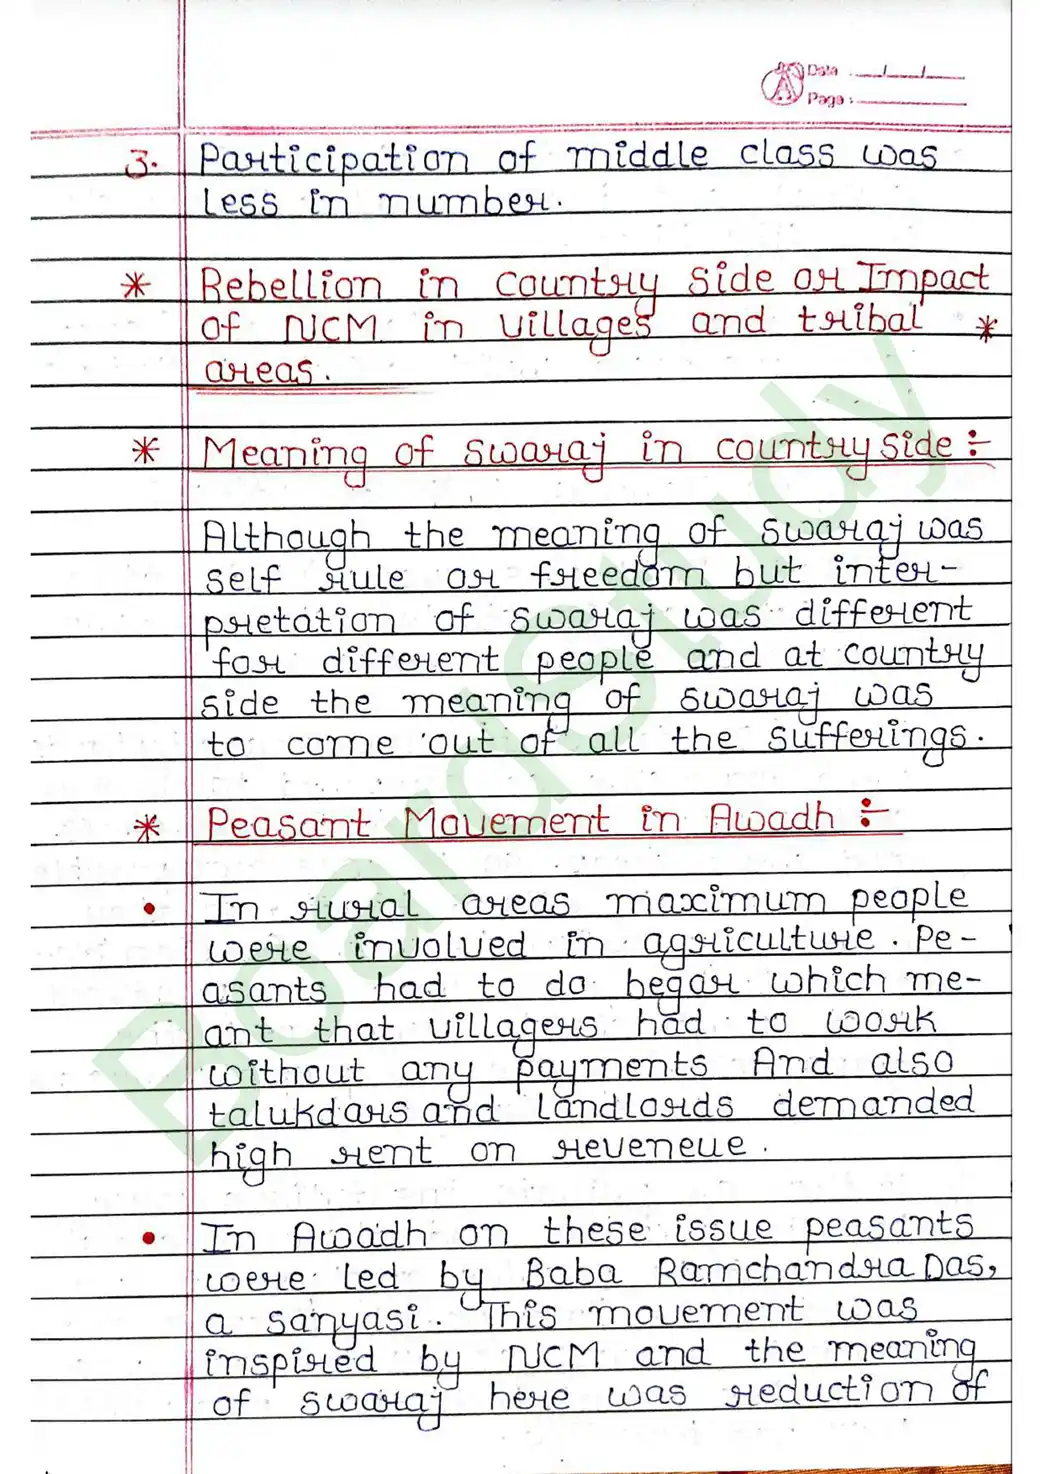 Date : __/__/__
Page :
3. Participation of middle class was
less in number.
* Rebellion in country side or Impact
of NCM in villages and tribal *
areas.
* Meaning of swaraj in country side :-
Although the meaning of swaraj was
self rule or freedom but inter-
pretation of swaraj was different
for different people and at country
side the meaning of swaraj was
to come out of all the sufferings.
* Peasant Movement in Awadh :-
• In rural areas maximum people
were involved in agriculture. Pe-
asants had to do begar which me-
ant that villagers had to work
without any payments And also
talukdars and landlords demanded
high rent on reveneue.
• In Awadh on these issue peasants
were led by Baba Ramchandra Das,
a sanyasi. This movement was
inspired by NCM and the meaning
of swaraj here was reduction of
BoardStudy